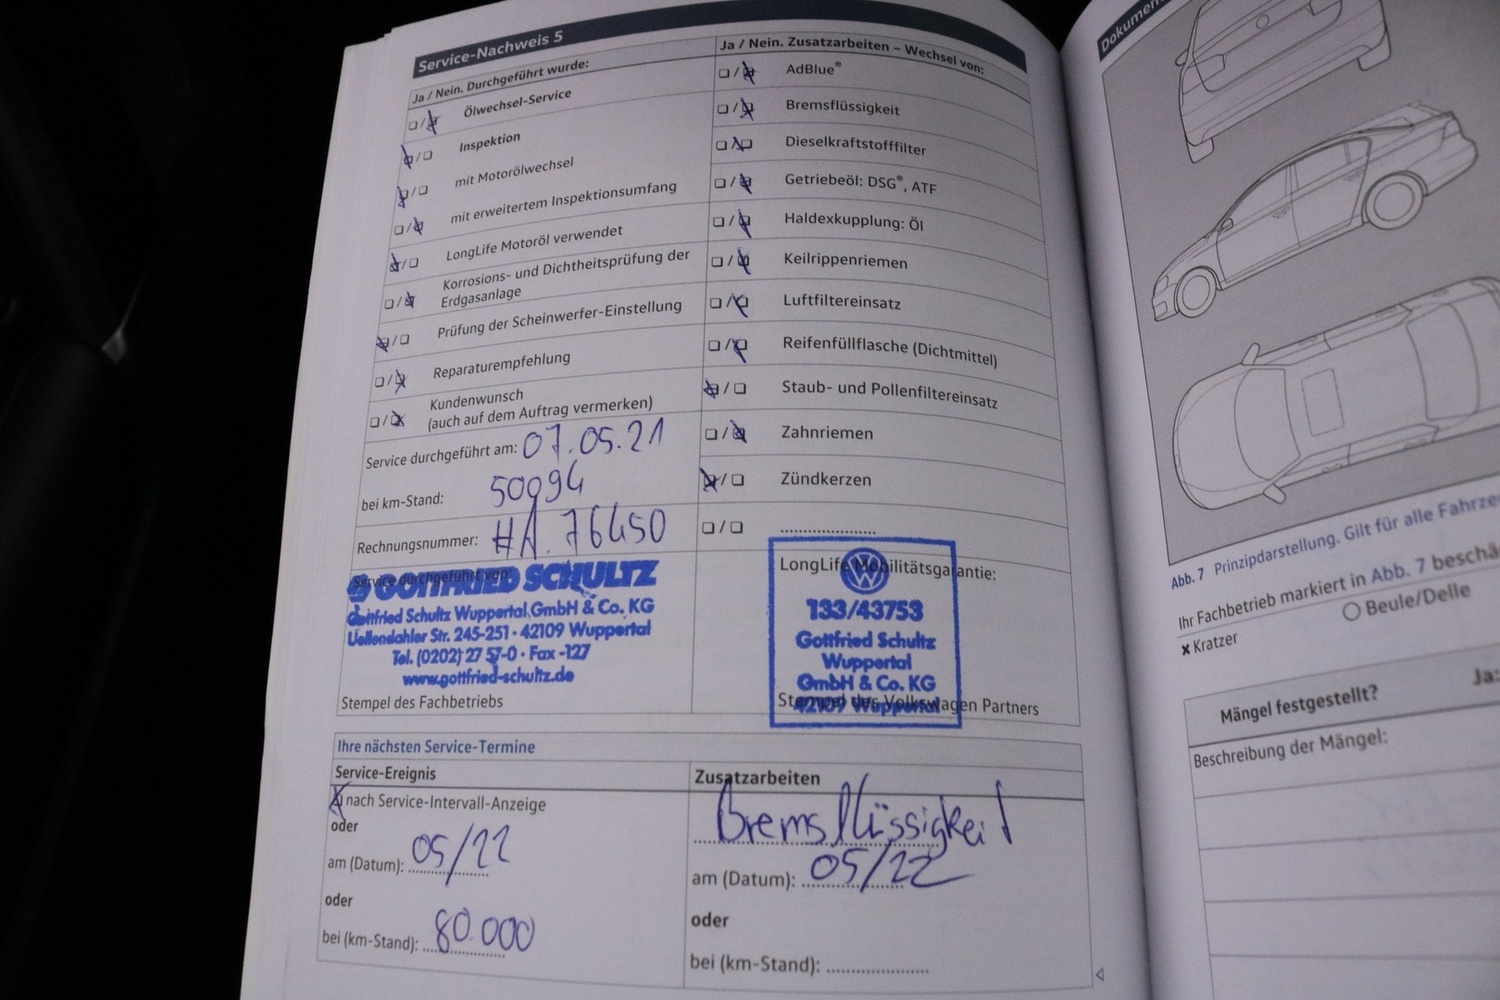 Service-Nachweis 5
Ja / Nein. Durchgeführt wurde:
Ölwechsel-Service
Inspektion
mit Motorölwechsel
mit erweitertem Inspektionsumfang
LongLife Motoröl verwendet
Korrosions- und Dichtheitsprüfung der
Erdgasanlage
Prüfung der Scheinwerfer-Einstellung
Reparaturempfehlung
Kundenwunsch
(auch auf dem Auftrag vermerken)
Service durchgeführt am: 07.05.21
bei km-Stand: 50094
Rechnungsnummer: #A. 76450
Service durchgeführt von:
GOTTFRIED SCHULTZ
Gottfried Schultz Wuppertal GmbH & Co. KG
Uellendahler Str. 245-251 · 42109 Wuppertal
Tel. (0202) 27 57-0 · Fax -127
www.gottfried-schultz.de
Stempel des Fachbetriebs
Ja / Nein. Zusatzarbeiten – Wechsel von:
AdBlue®
Bremsflüssigkeit
Dieselkraftstofffilter
Getriebeöl: DSG®, ATF
Haldexkupplung: Öl
Keilrippenriemen
Luftfiltereinsatz
Reifenfüllflasche (Dichtmittel)
Staub- und Pollenfiltereinsatz
Zahnriemen
Zündkerzen
LongLife Mobilitätsgarantie:
133/43753
Gottfried Schultz
Wuppertal
GmbH & Co. KG
42109 Wuppertal
Stempel des Volkswagen Partners
Ihre nächsten Service-Termine
Service-Ereignis
nach Service-Intervall-Anzeige
oder
am (Datum): 05/22
oder
bei (km-Stand): 80.000
Zusatzarbeiten
Bremsflüssigkeit
am (Datum): 05/22
oder
bei (km-Stand):
Abb. 7 Prinzipdarstellung. Gilt für alle
Ihr Fachbetrieb markiert in Abb. 7
Kratzer
Beule/Delle
Mängel festgestellt?
Ja:
Beschreibung der Mängel: